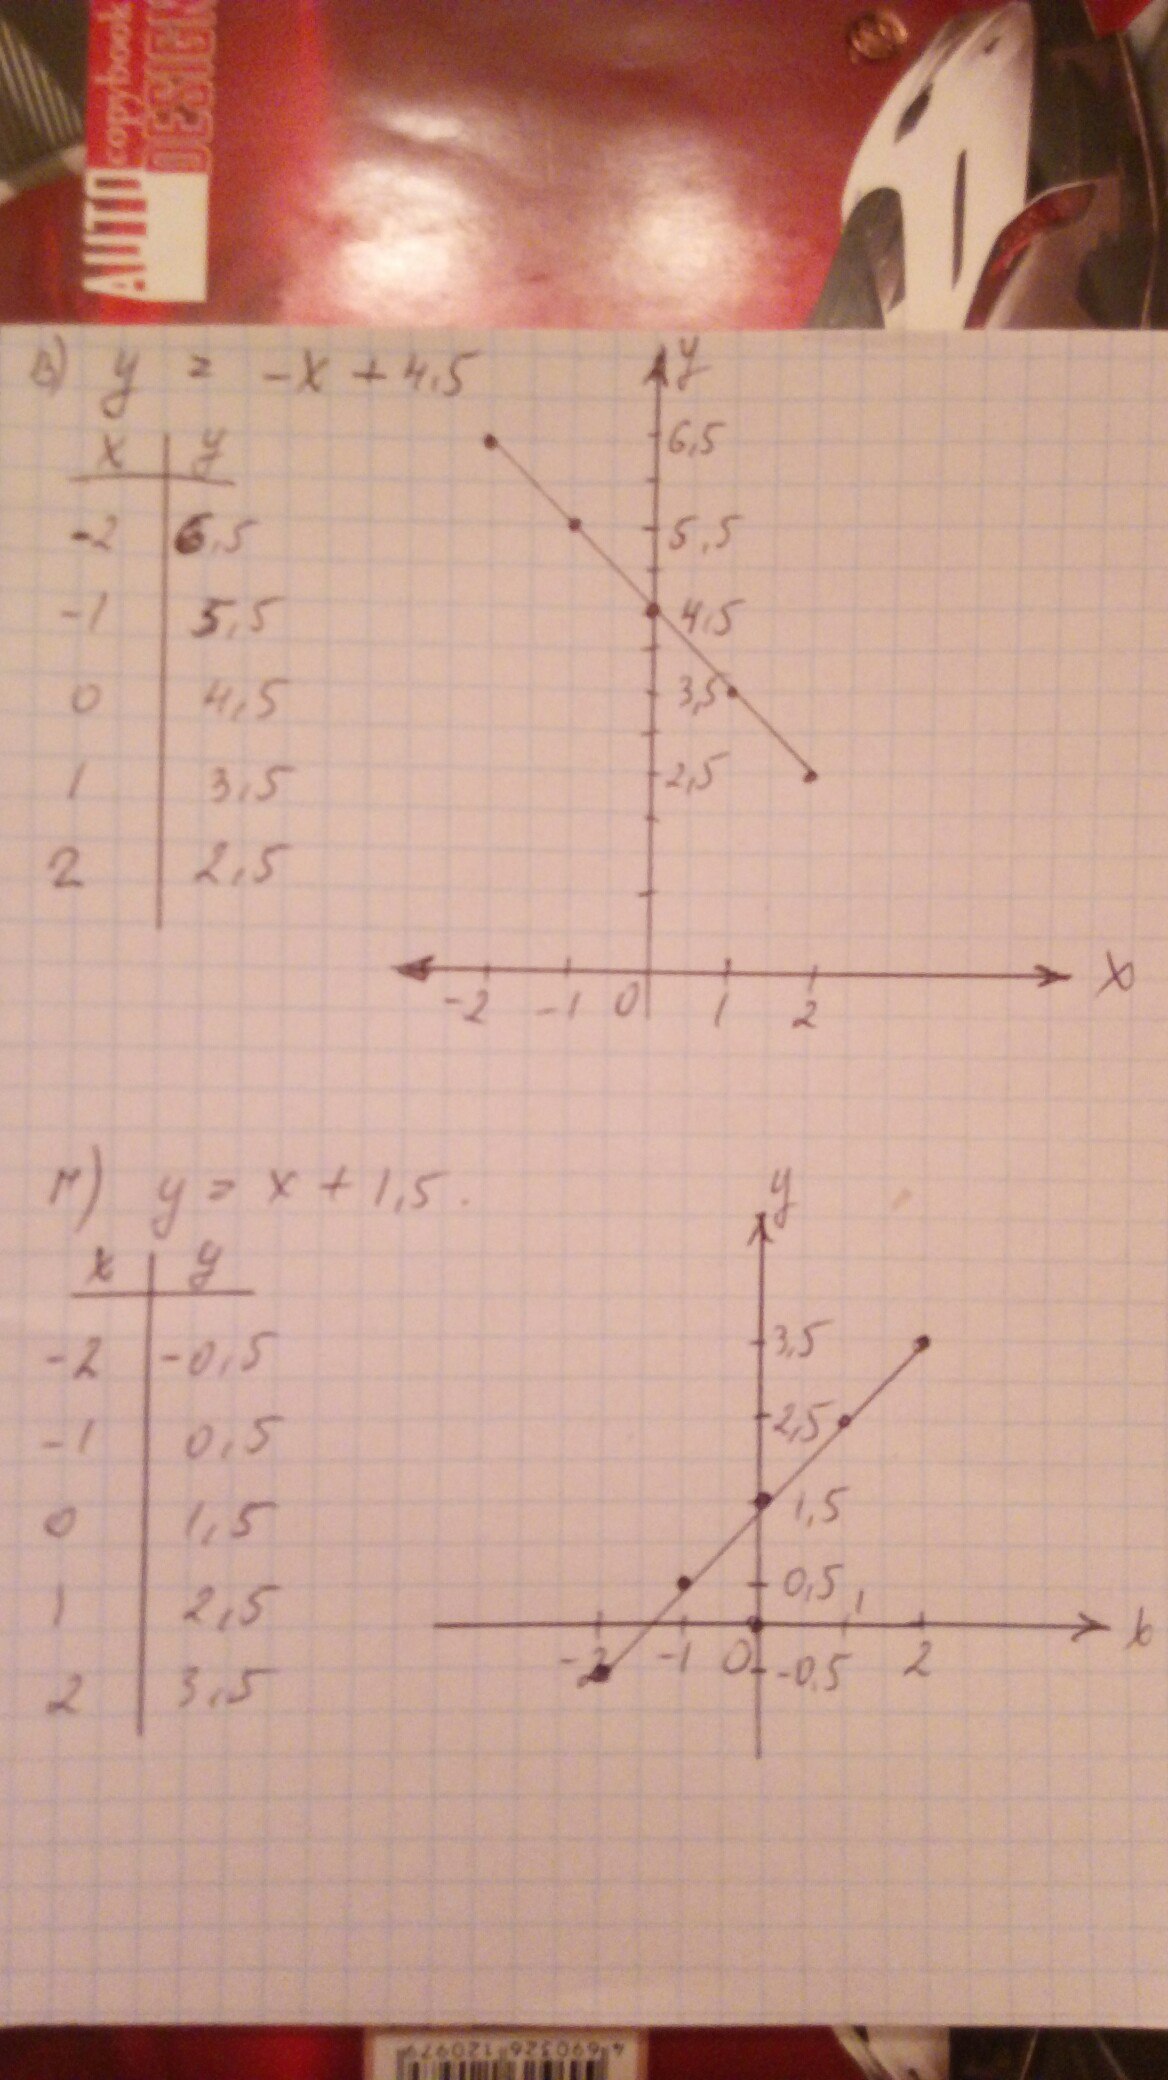 AUTO
copybook
DESIGN
в) y = -x + 4,5
x y
-2 6,5
-1 5,5
0 4,5
1 3,5
2 2,5
y
6,5
5,5
4,5
3,5
2,5
-2 -1 0 1 2 x
г) y = x + 1,5.
x y
-2 -0,5
-1 0,5
0 1,5
1 2,5
2 3,5
y
3,5
2,5
1,5
0,5 1
-2 -1 0 -0,5 2 x
4 690326 120979